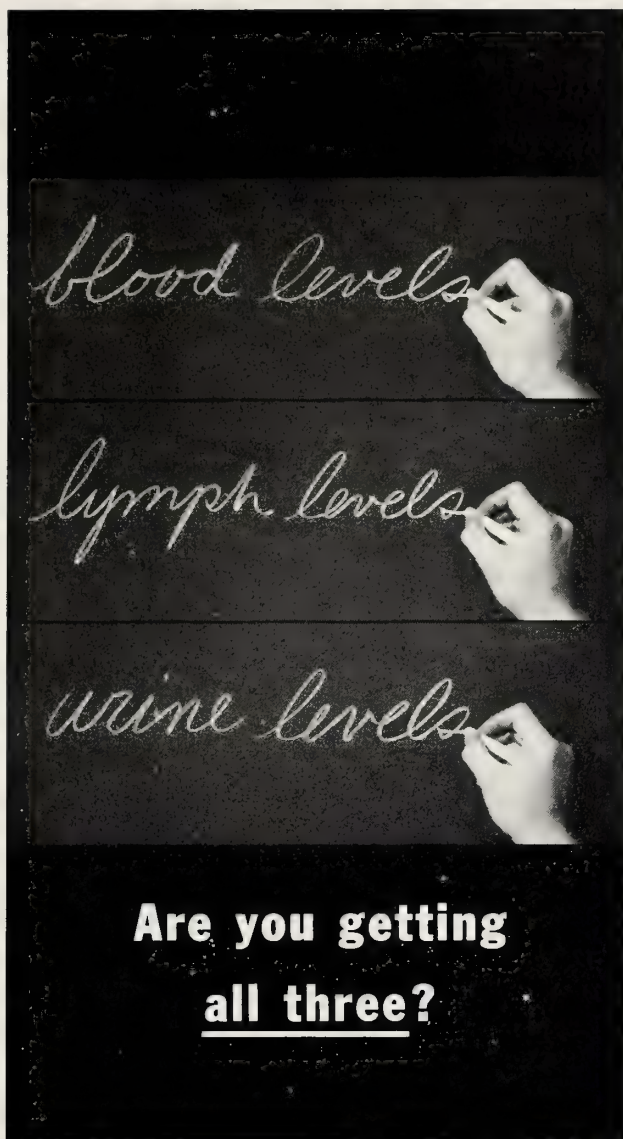 blood levels
lymph levels
urine levels
Are you getting
all three?